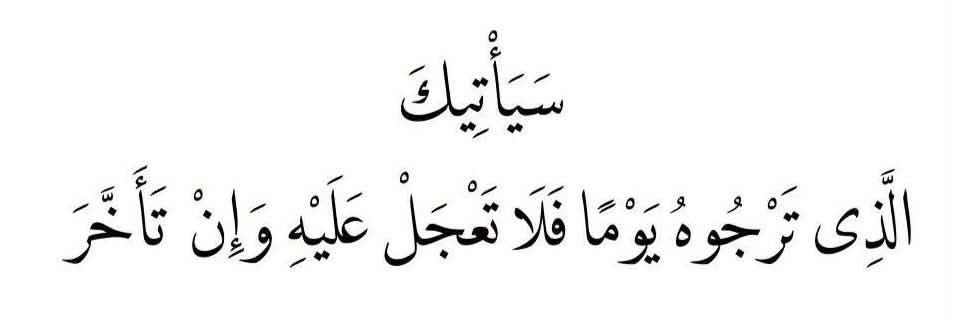 سَيَأْتِيكَ
الَّذِى تَرْجُوهُ يَوْمًا فَلَا تَعْجَلْ عَلَيْهِ وَإِنْ تَأَخَّرَ